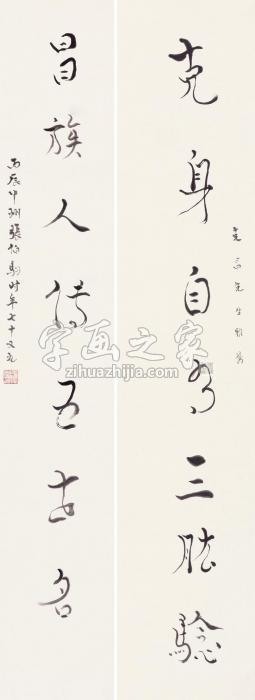 克昌先生雅屬
克身自為三肱驗
昌族人傳五世名
丙辰中州張伯駒時年七十又九
字画之家
zihuazhijia.com